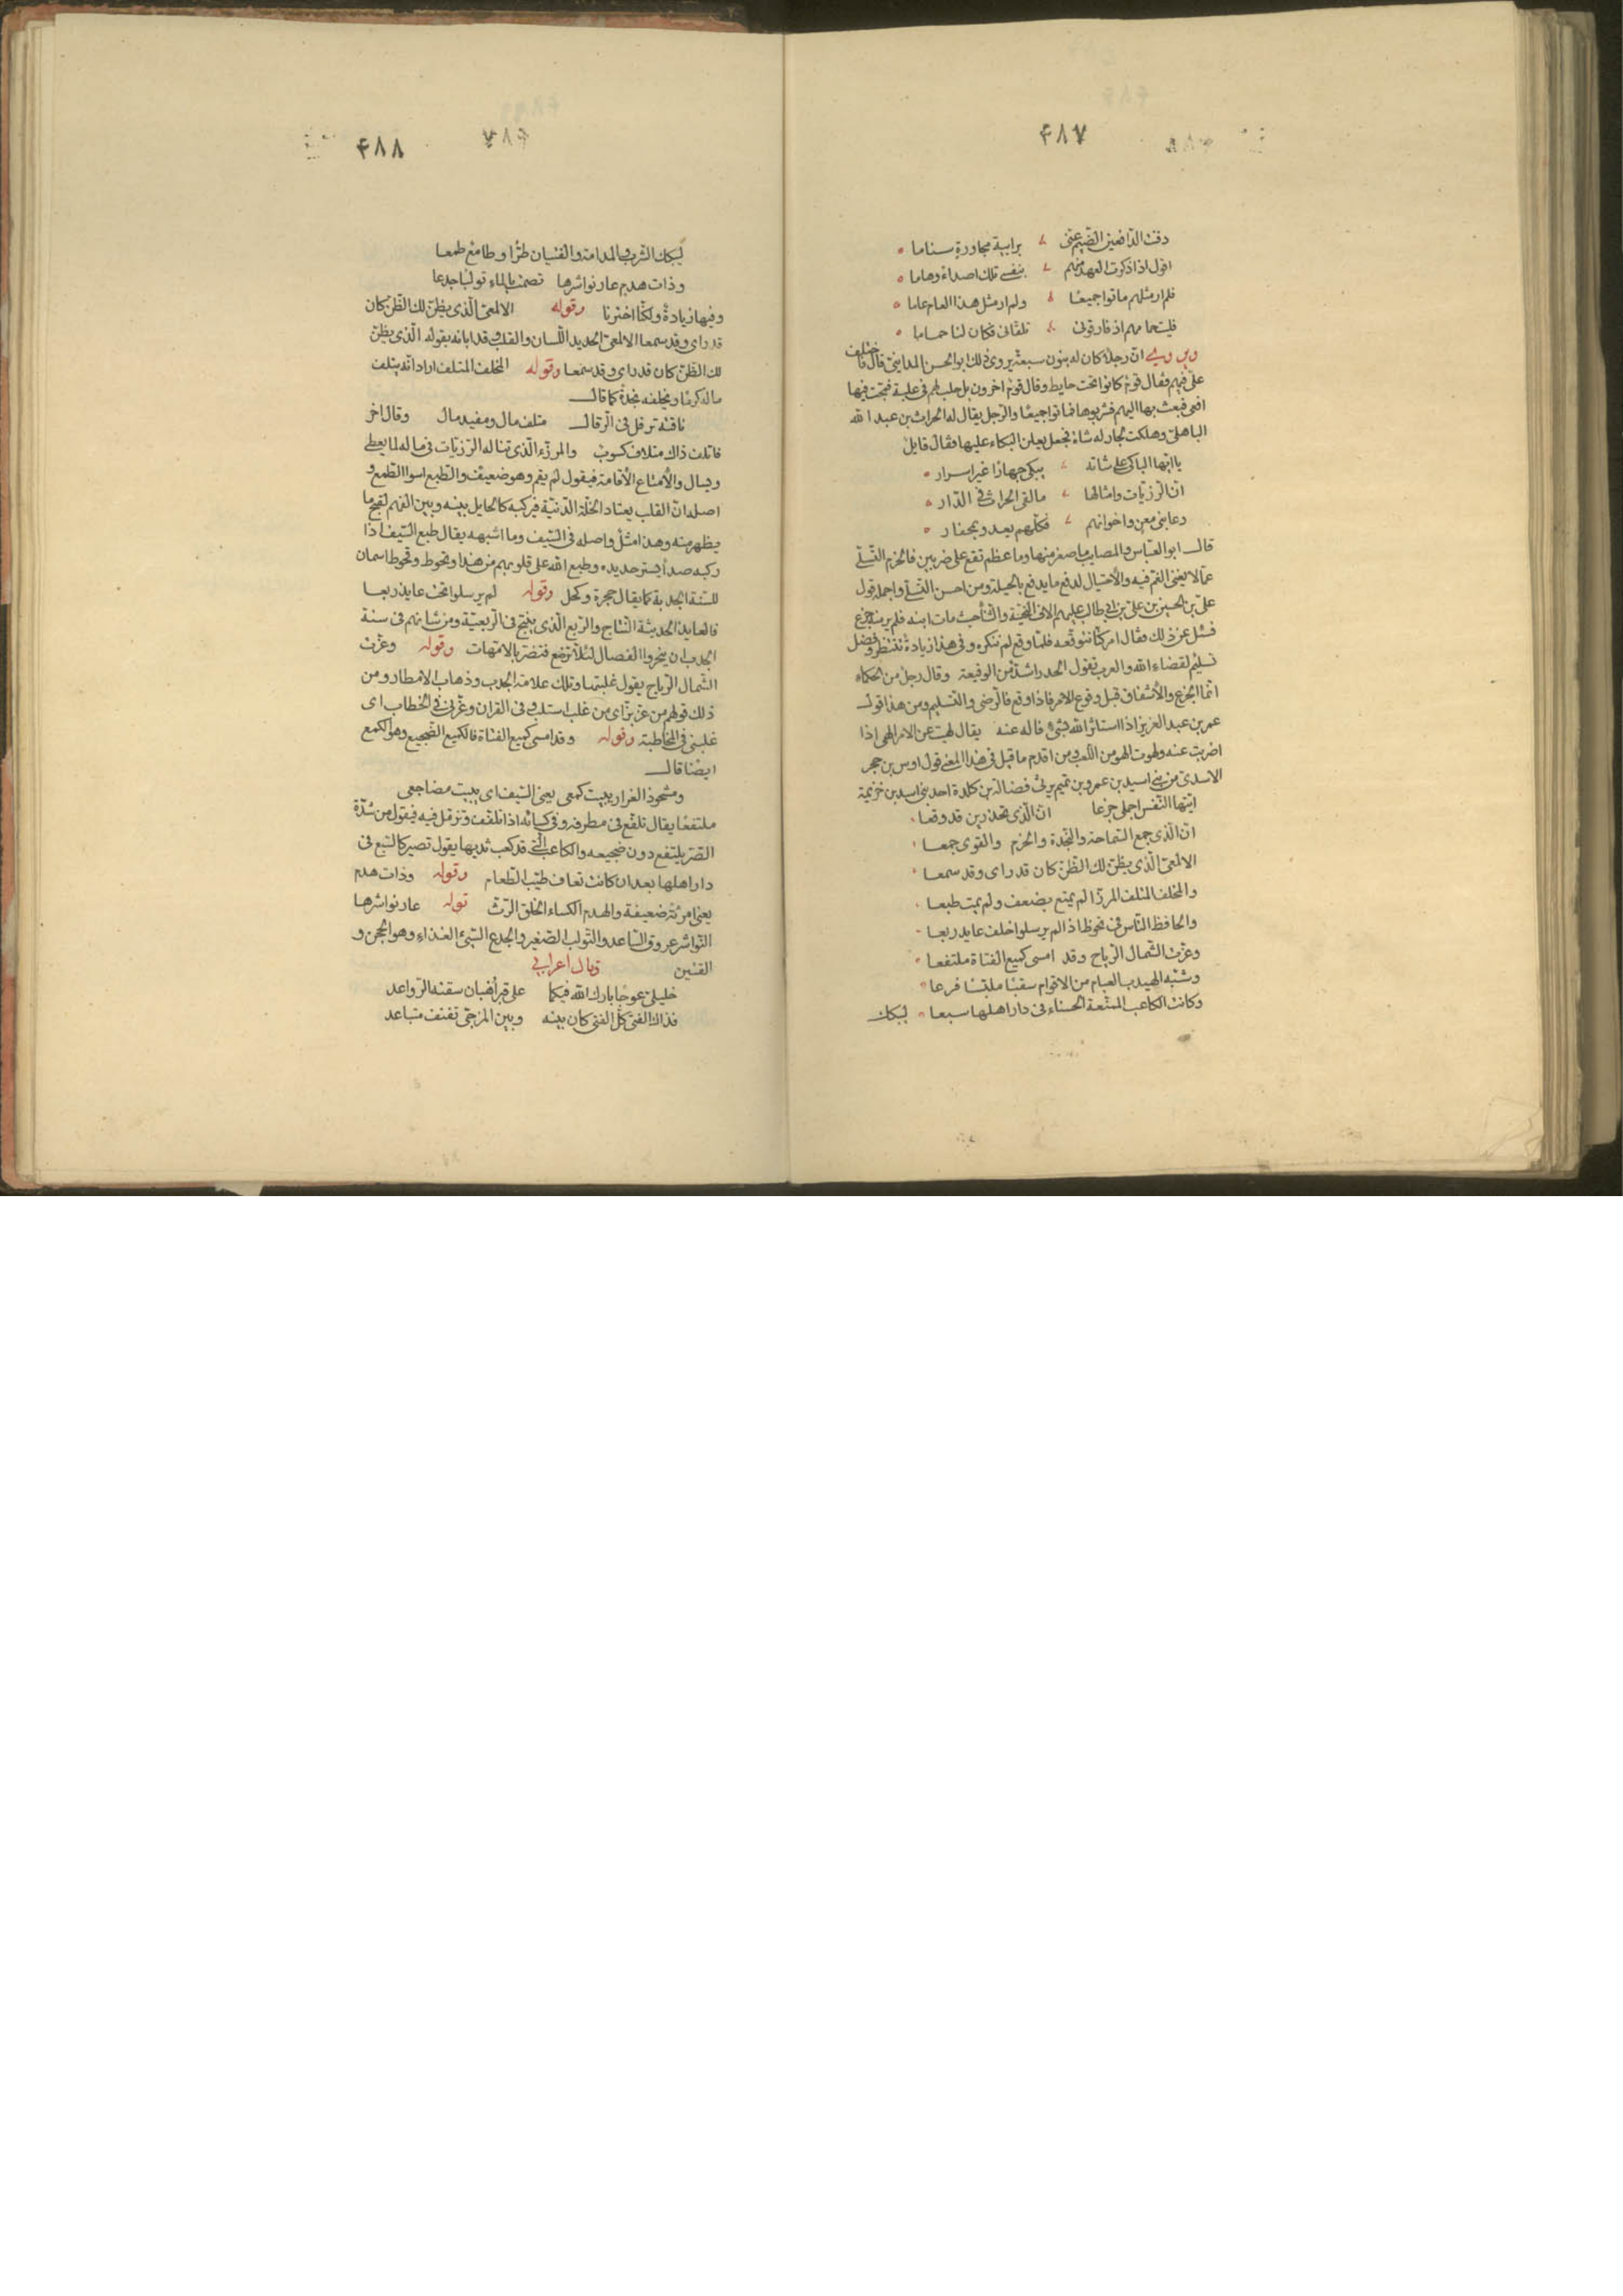 ۴۸۷
دفت الدافعين الضيم عنى برابية مجاورة سناما
اقول اذا ذكرت العهد منهم بنفسي تلك اصداءً وهاما
فلم ار مثلهم ماتوا جميعًا ولم ار مثل هذا العام عاما
فليت حمامهم اذ فارقونى تلقانى فكان لنا حماما
ويروى ان رجلًا كان له بنون سبعة يروى ذلك ابو الحسن المداينى قال فاختلف
على فهم فقال قوم كانوا تحت حايط وقال قوم اخرون بل حلب لهم فى علبة فمجت فيها
افعى فبعث بها اليهم فشربوها فماتوا جميعًا والرجل يقال له الحراث بن عبد الله
الباهلى وهلكت لجار له شاة فجعل يعلن البكاء عليها فقال قايل
يا ايها الباكى على شاته يبكى جهارًا غير اسرار
ان الرزيات وامثالها ما لقى الحراث فى الدار
دعا بنى معن واخوانهم فكلهم يعدو بمحفار
قال ابو العباس والمصايب ما صغر منها وما عظم تقع على ضربين فالحزم التسلى
عما لا يغنى الغم فيه والاحتيال لدفع ما يدفع بالحيلة ومن احسن التسلى واجمله قول
على بن الحسين بن على بن ابى طالب عليهم الاف التحية والثنا حيث مات ابنه فلم ير منه جزع
فسئل عن ذلك فقال امر كنا نتوقعه فلما وقع لم ننكره وفى هذا زيادة تنتظر وفضل
تسليم لقضاء الله والعرب تقول الحذر اشد من الوقيعة وقال رجل من الحكماء
انما الجزع والاشفاق قبل وقوع الامر فاذا وقع فالرضى والتسليم ومن هذا قول
عمر بن عبد العزيز اذا استاثر الله بشئ فاله عنه يقال لهيت عن الامر الهى اذا
اضربت عنه ولهوت الهو من اللعب ومن اقدم ما قيل فى هذا المعنى قول اوس بن حجر
الاسدى من بنى اسيد بن عمرو بن تميم يرثى فضالة بن كلدة احد بنى اسد بن خزيمة
ايتها النفس اجملى جزعا ان الذى تحذرين قد وقعا
ان الذى جمع السماحة والنجدة والحزم والقوى جمعا
الالمعى الذى يظن لك الظن كان قد راى وقد سمعا
والمخلف المتلف المرزا لم يمتع بضعف ولم يمت طبعا
والحافظ الناس فى تحوط اذا لم يرسلوا خلف عايذ ربعا
وعزت الشمال الرياح وقد امسى كميع الفتاة ملتفعا
وشبه الهيدب العبام من الاقوام سقبًا ملبسًا فرعا
وكانت الكاعب الممنعة الحسناء فى دار اهلها سبعا ليبكك
۴۸۸
ليبكك الشرب والمدامة والفتيان طرًا وطامع طمعا
وذات هدم عار نواشرها تصمت بالماء تولبًا جدعا
وفيها زيادة ولكنا اخترنا وقوله الالمعى الذى يظن لك الظن كان
قد راى وقد سمعا الالمعى الحديد اللسان والقلب وقد ابانه بقوله الذى يظن
لك الظن كان قد راى وقد سمعا وقوله المخلف المتلف اراد انه يتلف
ماله كرمًا ويخلفه نجدة كما قال
ناقته ترفل فى الرقال متلف مال ومفيد مال وقال اخر
فاتلف ذاك متلاف كسوب والمرزء الذى تناله الرزيات فى ماله لما يعطى
ويسال والامتاع الاقامة فيقول لم يقم وهو ضعيف والطبع اسوا الطمع و
اصله ان القلب يعتاد الخلة الدنية فيركبه كالحايل بينه وبين الفهم لقبح ما
يظهر منه وهذا مثل واصله فى السيف وما اشبهه يقال طبع السيف اذا
ركبه صدأ يستر حديده وطبع الله على قلوبهم من هذا وتحوط وقحوط اسمان
للسنة الجدبة كما يقال حجرة وكحل وقوله لم يرسلوا تحت عايذ ربعا
فالعايذ الحديثة النتاج والربع الذى ينتج فى الربعية ومن شانهم فى سنة
الجدب ان ينحروا الفصال لئلا ترضع فتضر بالامهات وقوله وعزت
الشمال الرياح يقول غلبتها وتلك علامة الجدب وذهاب الامطار ومن
ذلك قولهم من عز بز اى من غلب استلب وفى القران وعزنى فى الخطاب اى
غلبنى فى المخاطبة وقوله وقد امسى كميع الفتاة فالكميع الضجيع وهو الكمع
ايضًا قال
ومشحوذ الغرار يبيت كمعى يعنى السيف اى يبيت مضاجعى
ملتفعًا يقال تلفع فى مطرفه وفى كسائه اذا تلفف وتزمل فيه فيقول من شدة
الصر يلتفع دون ضجيعه والكاعب التى قد كعب ثديها يقول تصير كالسبع فى
دار اهلها بعد ان كانت تعاف طيب الطعام وقوله وذات هدم
يعنى امرئة ضعيفة والهدم الكساء الخلق الرث قوله عار نواشرها
النواشر عروق الساعد والتولب الصغير والجدع السيئ الغذاء وهو الجحن و
القتين وقال اعرابي
خليلى عوجا بارك الله فيكما على قبر اهبان سقته الرواعد
فذاك الفتى كل الفتى كان بينه وبين المزجى نفنف متباعد